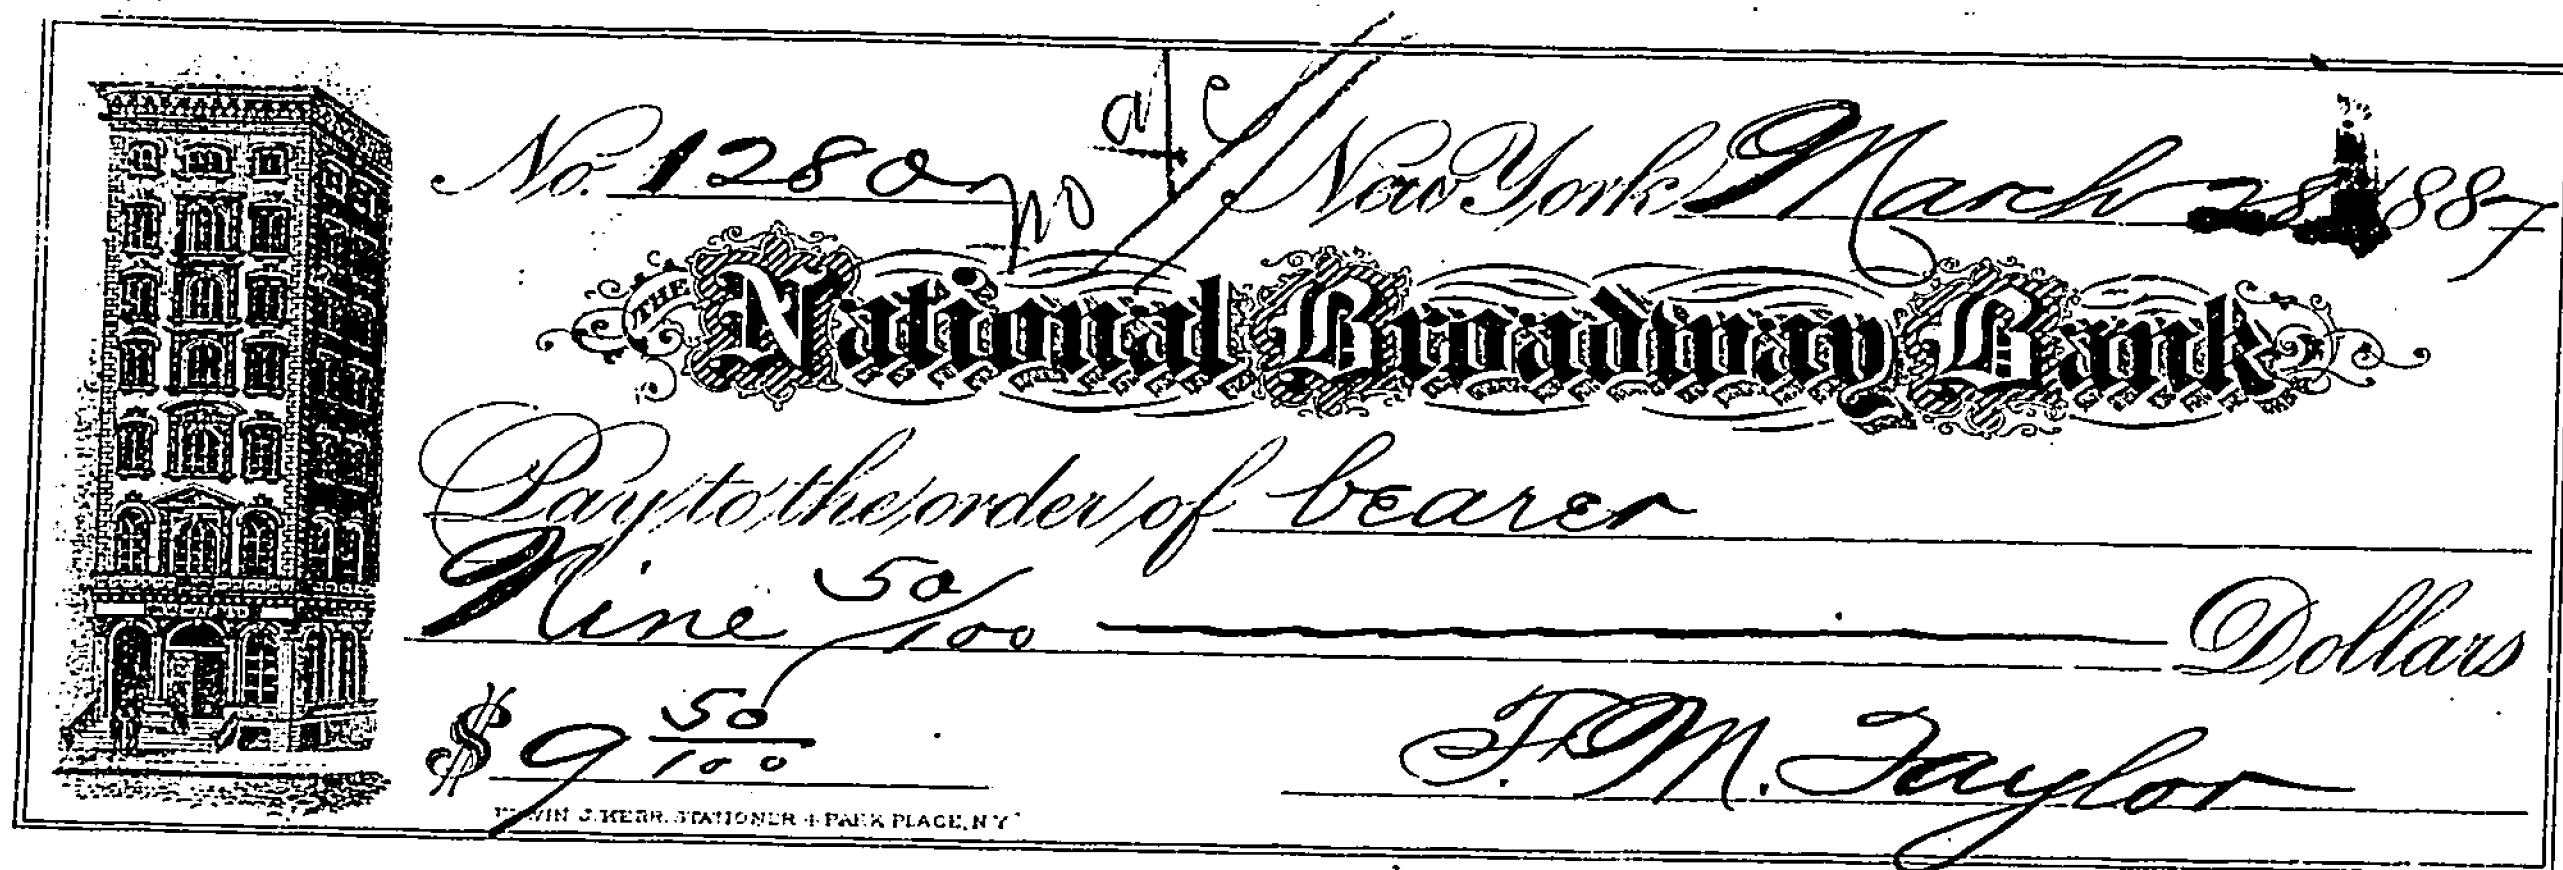 No. 1280 New York March 28 1887
THE National Broadway Bank
Pay to the order of bearer
Nine 50/100 Dollars
$ 9 50/100 F. M. Taylor
J. HERR, STATIONER 4 PARK PLACE, N.Y.